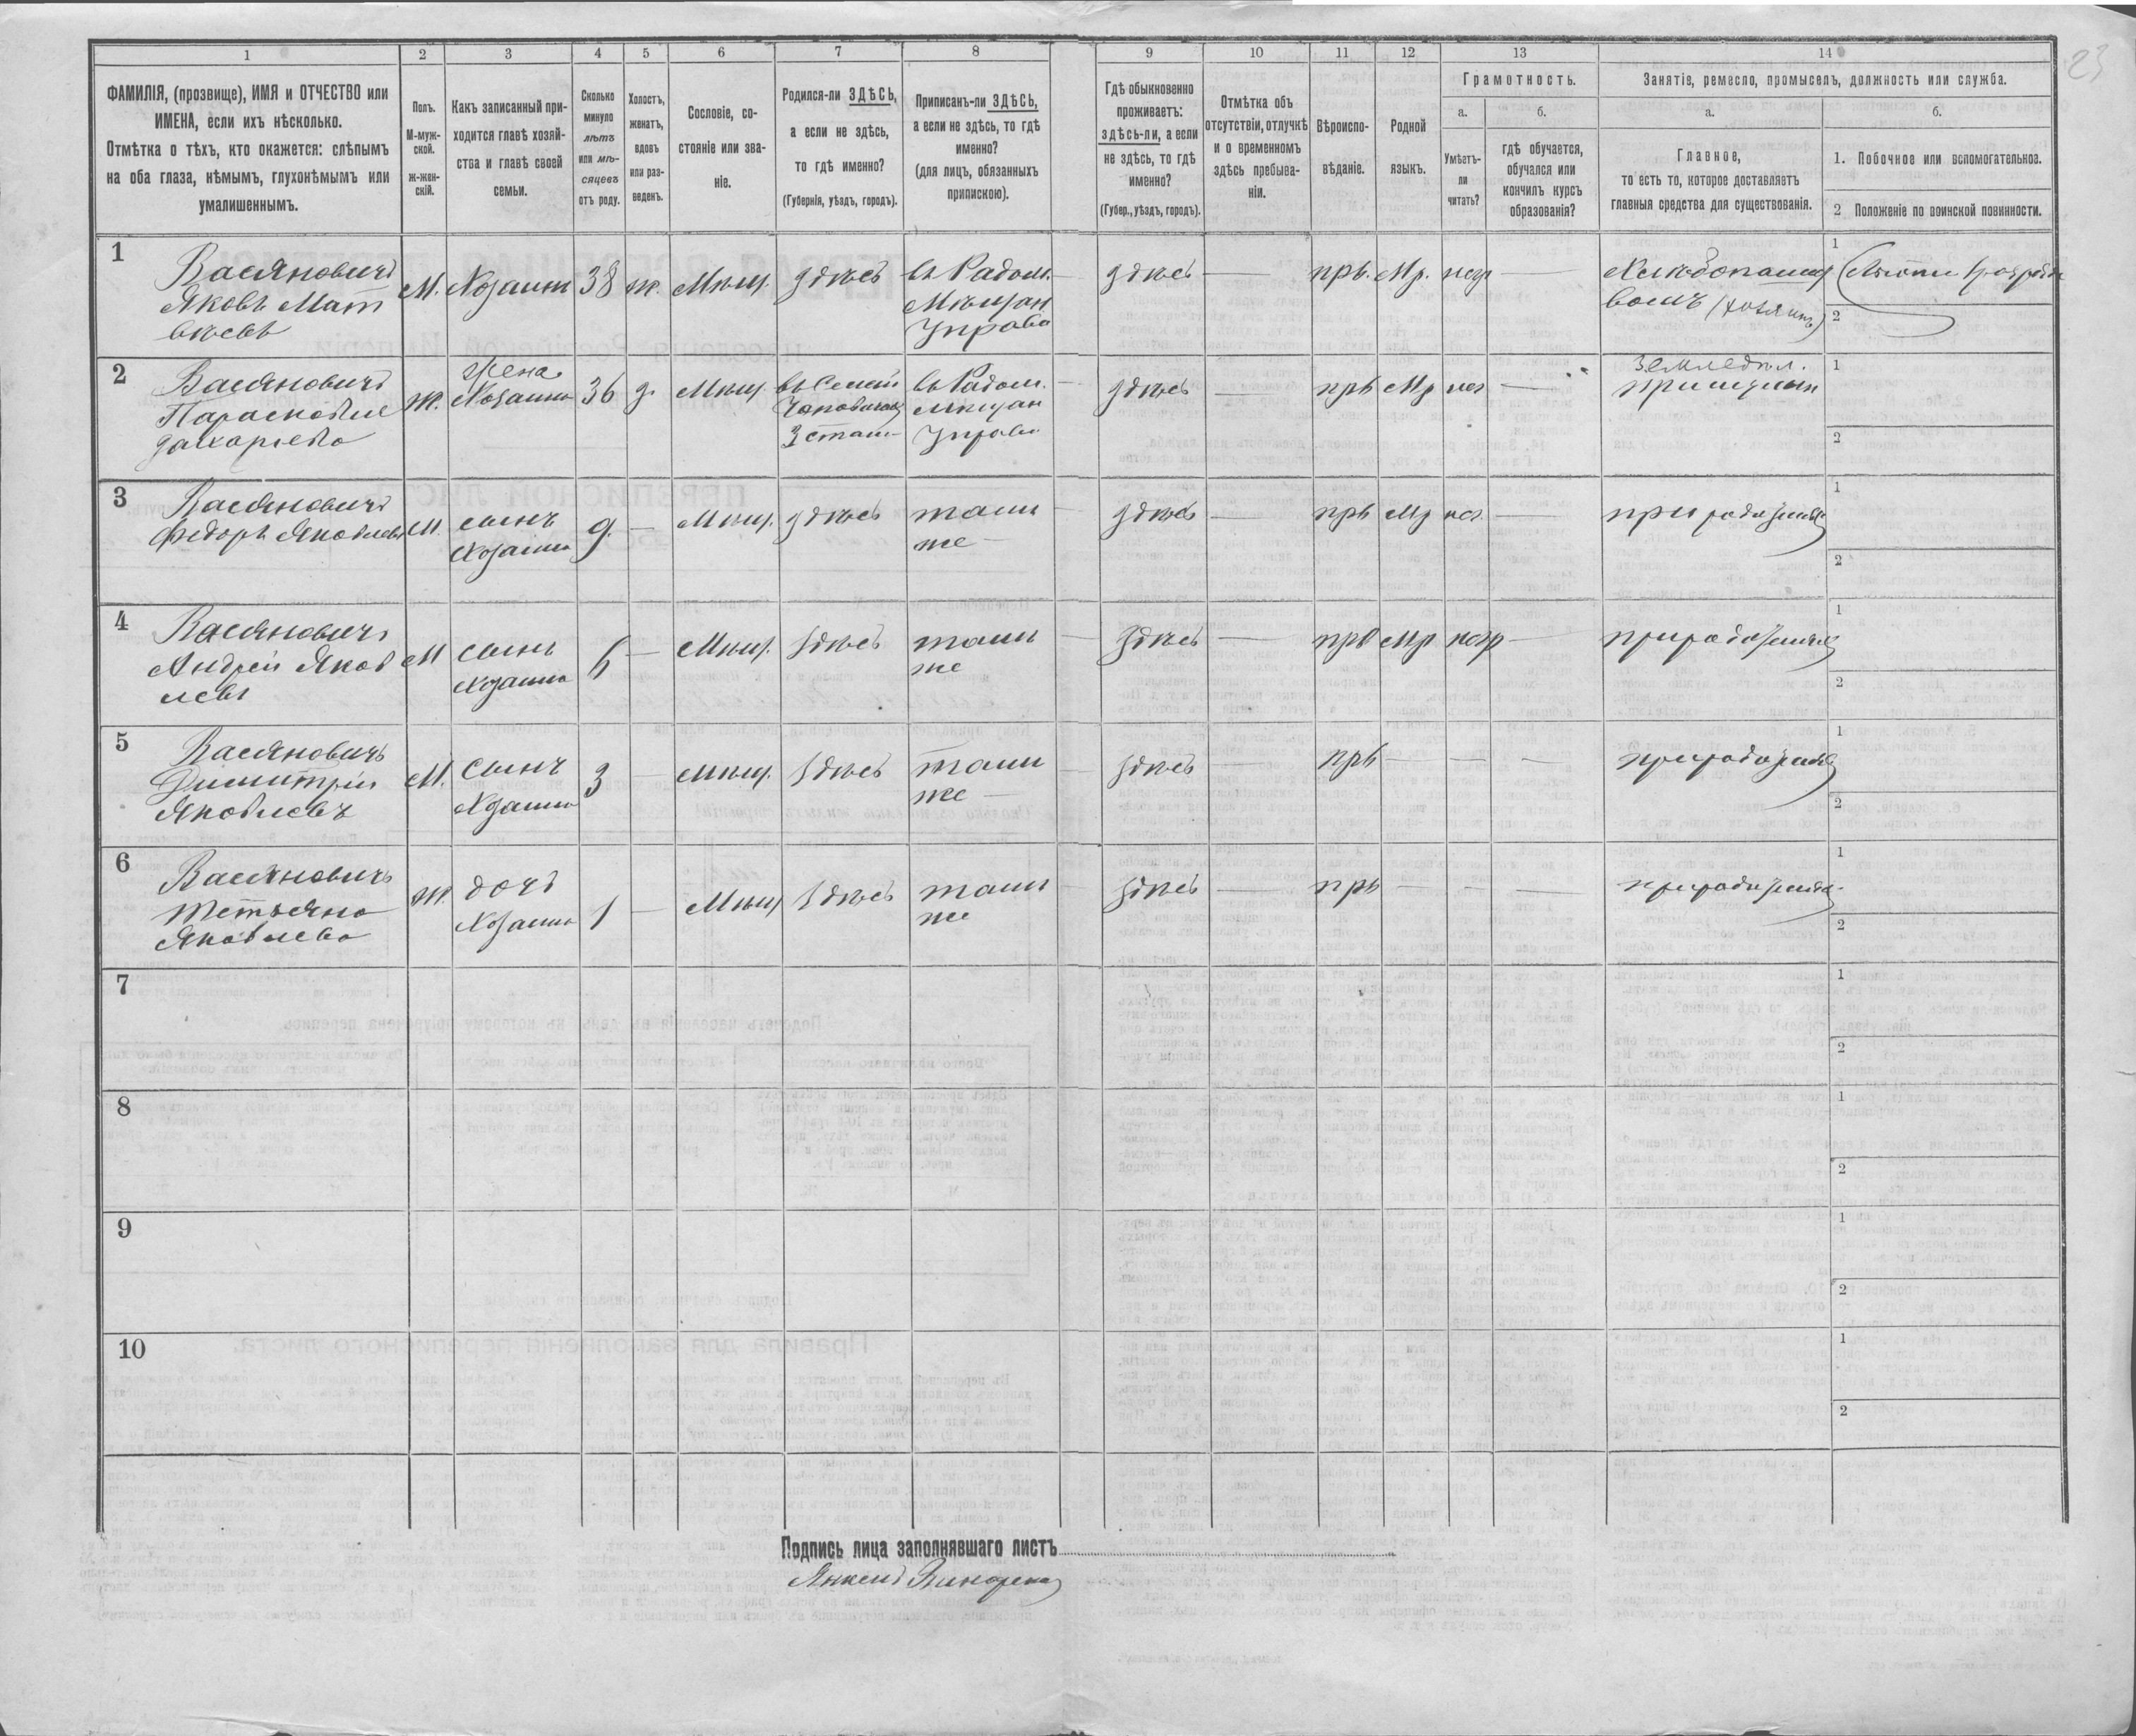 1 2 3 4 5 6 7 8 9 10 11 12 13 14
23
ФАМИЛІЯ, (прозвище), ИМЯ и ОТЧЕСТВО или
ИМЕНА, если ихъ нѣсколько.
Отмѣтка о тѣхъ, кто окажется: слѣпымъ
на оба глаза, нѣмымъ, глухонѣмымъ или
умалишеннымъ.
Полъ.
М-муж-
ской.
ж-жен-
скій.
Какъ записанный при-
ходится главѣ хозяй-
ства и главѣ своей
семьи.
Сколько
минуло
лѣтъ
или мѣ-
сяцевъ
отъ роду.
Холостъ,
женатъ,
вдовъ
или раз-
веденъ.
Сословіе, со-
стояніе или зва-
ніе.
Родился-ли ЗДѢСЬ,
а если не здѣсь,
то гдѣ именно?
(Губернія, уѣздъ, городъ).
Приписанъ-ли ЗДѢСЬ,
а если не здѣсь, то гдѣ
именно?
(для лицъ, обязанныхъ
припискою).
Гдѣ обыкновенно
проживаетъ:
здѣсь-ли, а если
не здѣсь, то гдѣ
именно?
(Губер., уѣздъ, городъ).
Отмѣтка объ
отсутствіи, отлучкѣ
и о временномъ
здѣсь пребыва-
ніи.
Вѣроиспо-
вѣданіе.
Родной
языкъ.
Грамотность.
а.
Умѣетъ-
ли
читать?
б.
гдѣ обучается,
обучался или
кончилъ курсъ
образованія?
Занятіе, ремесло, промыселъ, должность или служба.
а.
Главное,
то есть то, которое доставляетъ
главныя средства для существованія.
б.
1. Побочное или вспомогательное.
2 Положеніе по воинской повинности.
1
Васяновичъ
Яковъ Мат
вѣевъ
М. Хозаинъ 38 ж. Мѣщ. здѣсь
въ Радом.
Мѣщан.
Управѣ
здѣсь — прв. Мр. —
(хозяинъ)
1
2
2
Васяновичъ
Парасковія
Захарьева
Ж.
жена
Хозаина
36 з. Мѣщ.
въ Радом.
мѣщан
Управѣ
здѣсь — прв Мр —
земледѣл.
1
2
3
Васяновичъ
Федоръ Яковлевъ
М.
сынъ
Хозаина
9. — Мѣщ. здѣсь
тамъ
же
здѣсь — прв Мр —
1
2
4
Васяновичъ
Андрей Яков
левъ
М
сынъ
Хозаина
6 — Мѣщ. здѣсь
тамъ
же
здѣсь — прв Мр —
1
2
5
Васяновичъ
Димитрій
Яковлевъ
М.
сынъ
Хозаина
3 — Мѣщ. здѣсь
тамъ
же
здѣсь — прв — — —
1
2
6
Васяновичъ
Тетьяна
Яковлева
Ж.
дочь
Хозаина
1 — Мѣщ здѣсь
тамъ
же
здѣсь — прв — — —
1
2
7
1
2
8
1
2
9
1
2
10
1
2
Подпись лица заполнявшаго листъ